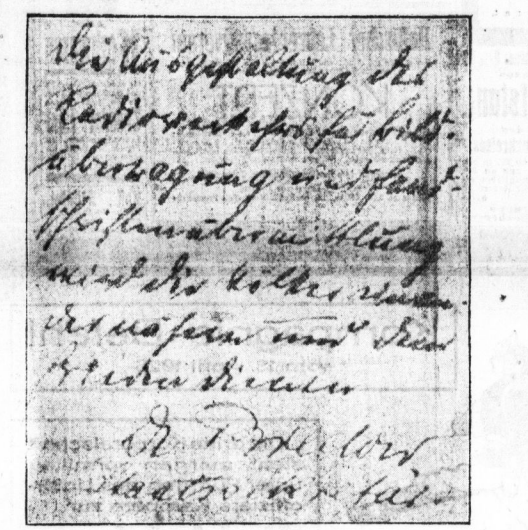 Die Ausgestaltung des
Radioverkehrs für Bild-
übertragung und Hand-
schriftenübermittlung
wird die Völker einan-
der nähern und dem
Frieden dienen
Dr Bredow
Staatssekretär